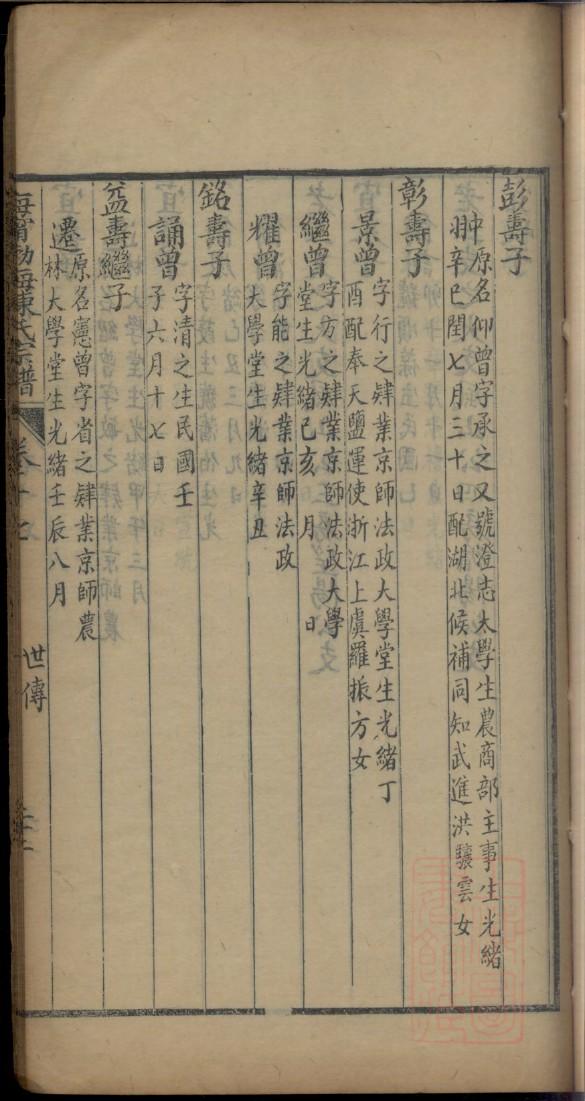 彭壽子
翀
原名仰曾字承之又號澄志大學生農商部主事生光緒
辛巳閏七月三十日配湖北候補同知武進洪驤雲女
彰壽子
景曾
字行之肄業京師法政大學堂生光緒丁
酉配奉天鹽運使浙江上虞羅振方女
繼曾
字方之肄業京師法政大學
堂生光緒己亥 月 日
耀曾
字能之肄業京師法政
大學堂生光緒辛丑
銘壽子
誦曾
字清之生民國壬
子六月十七日
益壽繼子
遷
原名憲曾字省之肄業京師農
林大學堂生光緒壬辰八月
海甯渤海陳氏宗譜 卷十七 世傳